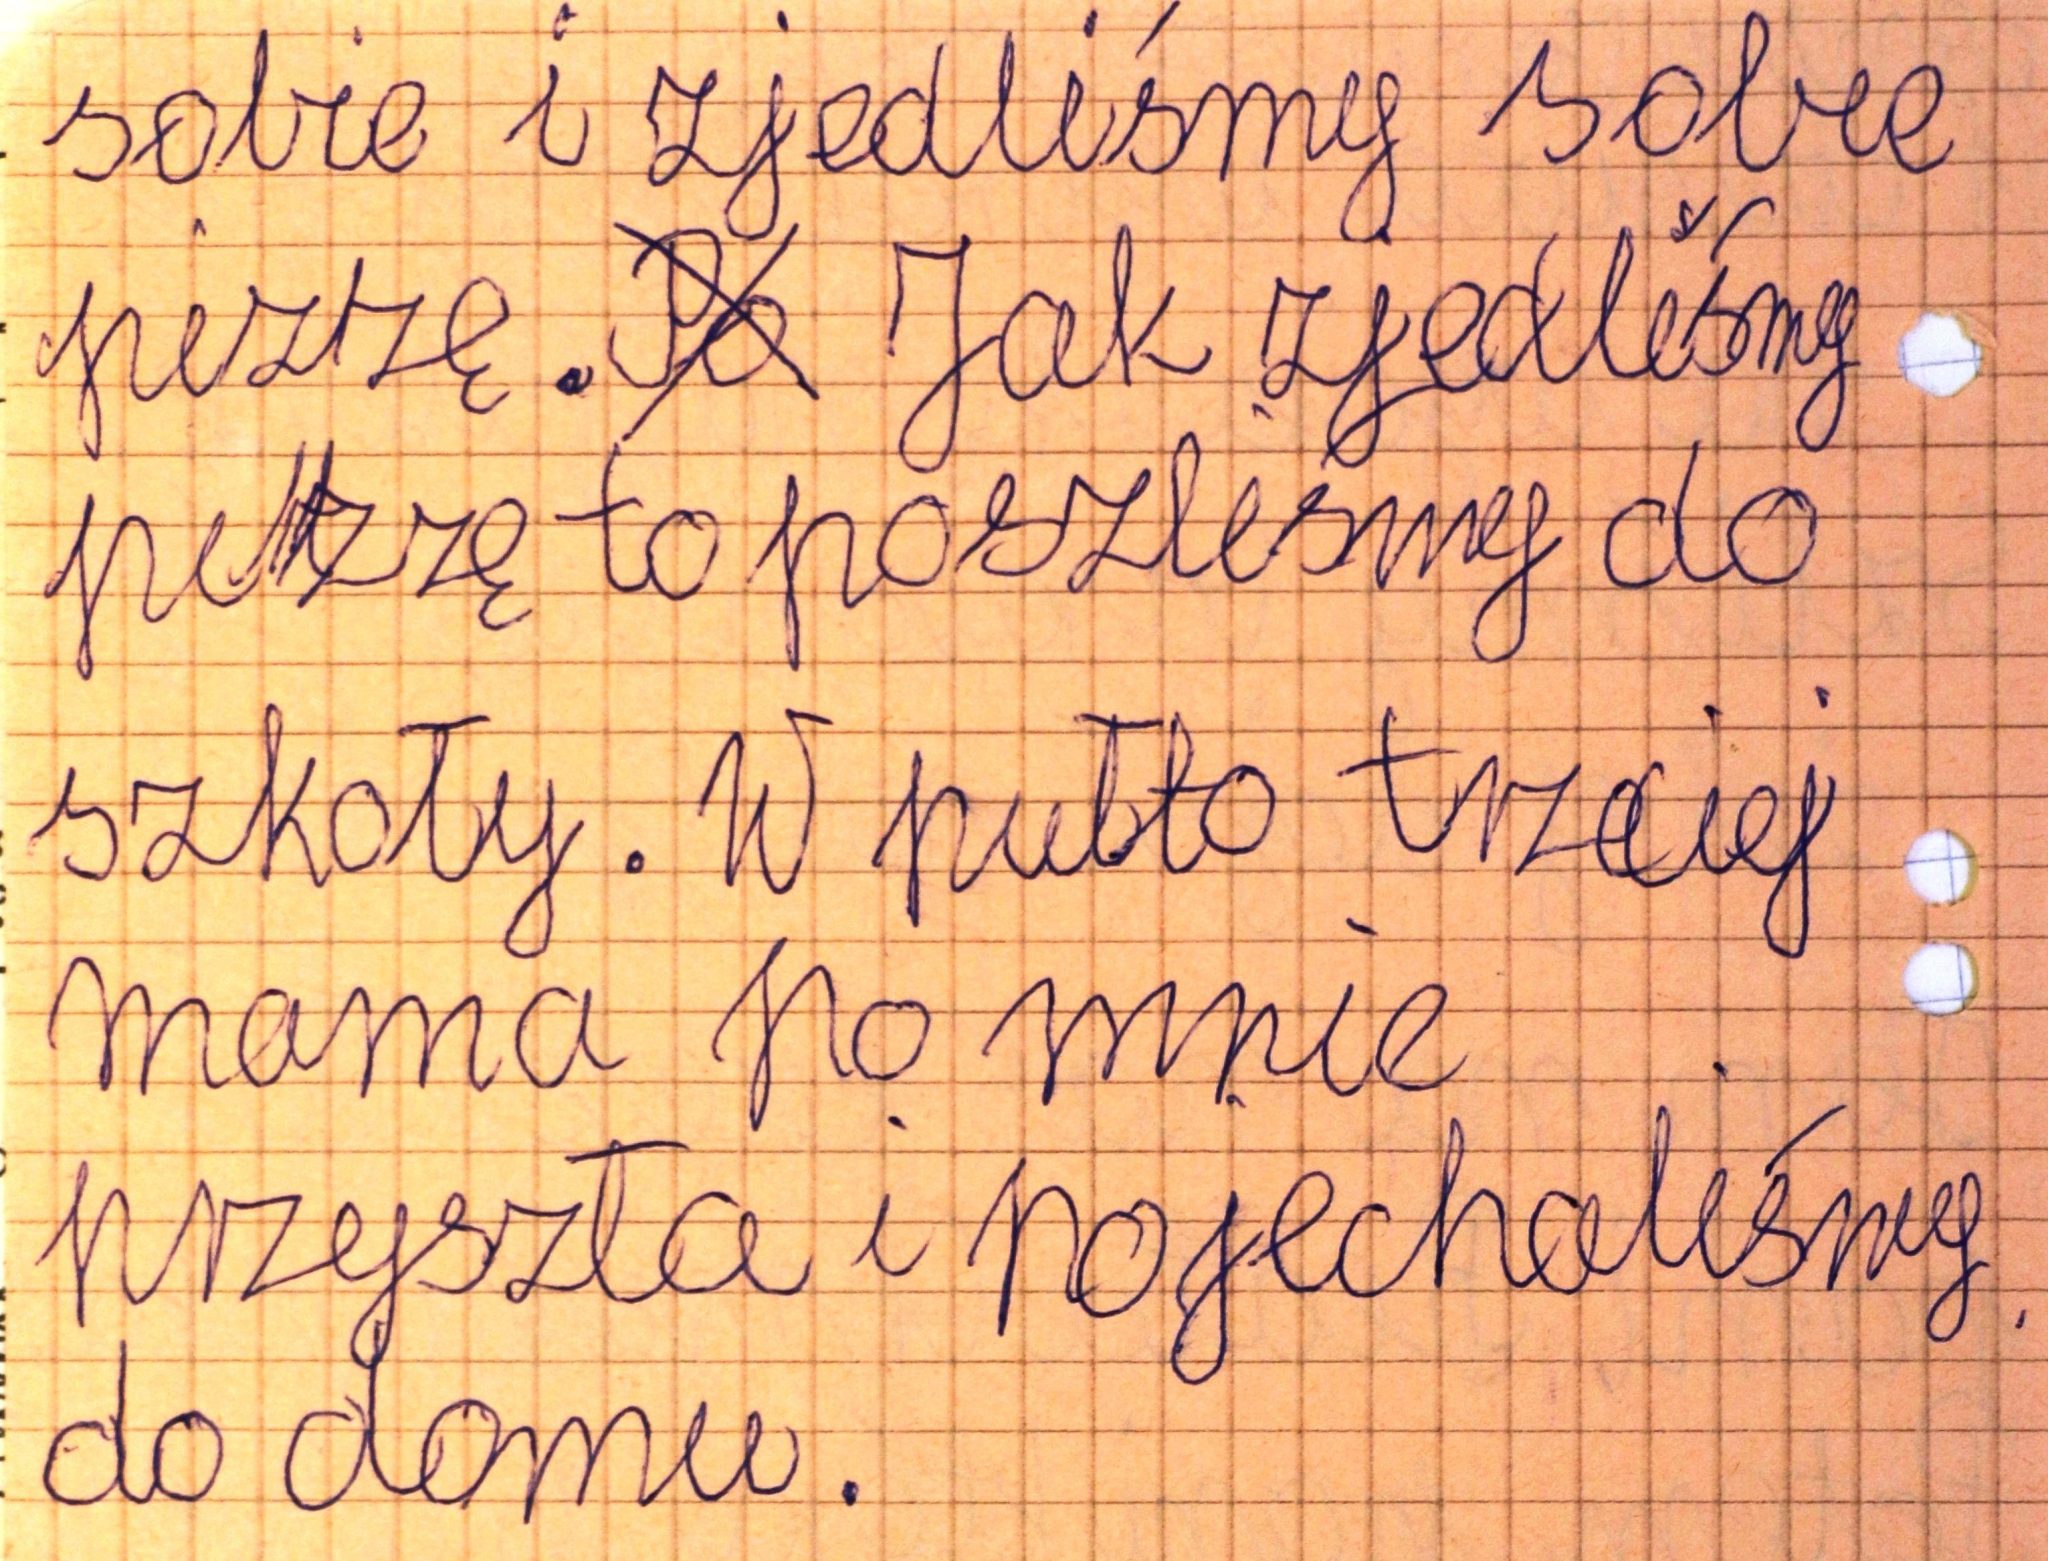 sobie i zjedliśmy sobie
pizzę. Jak zjedliśmy
pizzę to poszliśmy do
szkoły. W putto trzeciej
mama po mnie
przyszła i pojechaliśmy
do domu.